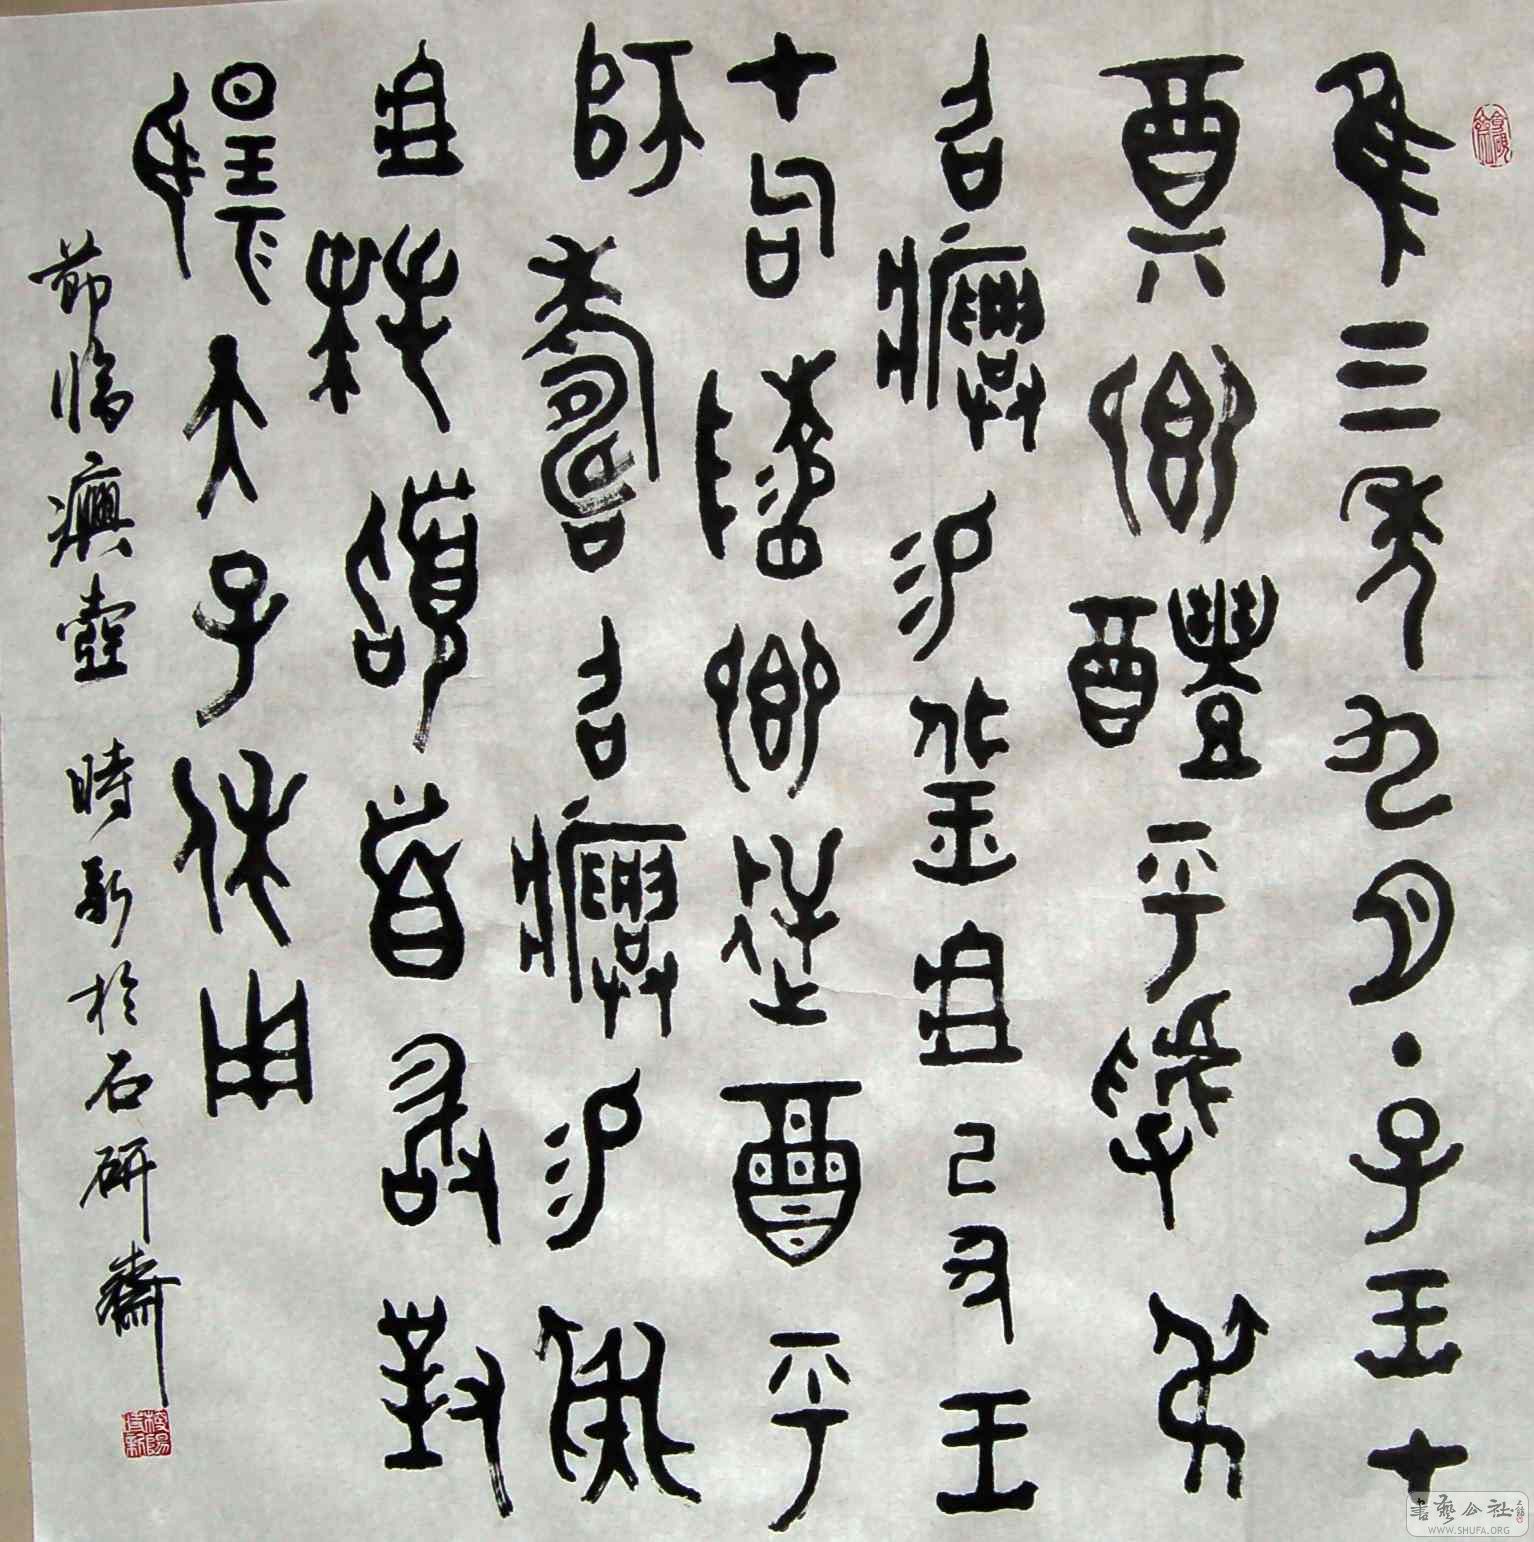 隹三年九月丁子王才
奠卿醴乎虢弔
召𤼈易羔俎己丑王
才句陵卿逆酉乎
師壽召𤼈易彘
俎拜𩒨首敢對
揚天子休用
節臨𤼈壺 時新於石研齋
書藝公社
WWW.SHUFA.ORG